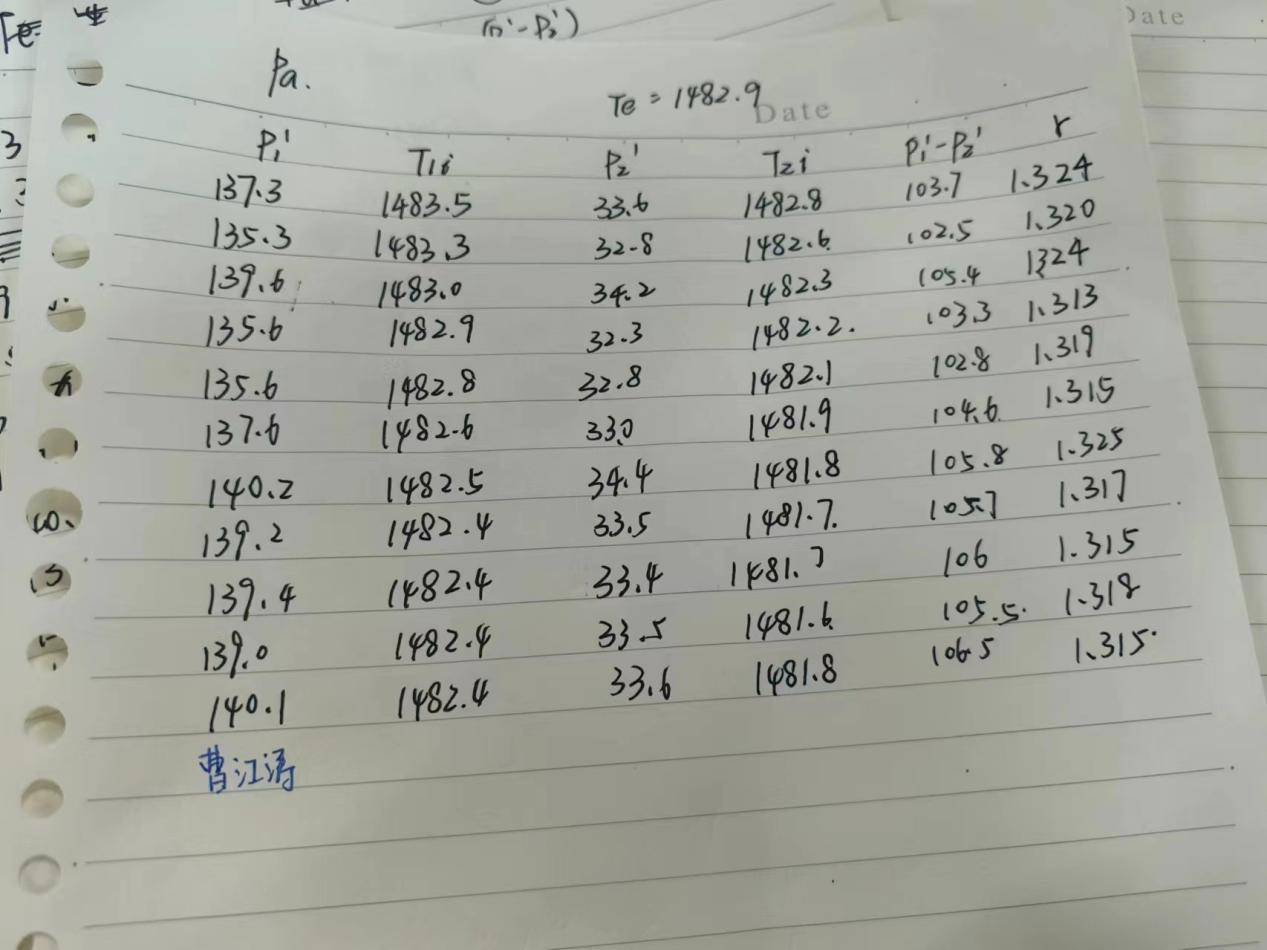 (P₁'-P₂')
Date
Pa.
Te = 1482.9
Date
P₁' T₁i P₂' T₂i P₁'-P₂' r
137.3 1483.5 33.6 1482.8 103.7 1.324
135.3 1483.3 32.8 1482.6 102.5 1.320
139.6 1483.0 34.2 1482.3 105.4 1324
135.6 1482.9 32.3 1482.2. 103.3 1.313
135.6 1482.8 32.8 1482.1 102.8 1.319
137.6 1482.6 33.0 1481.9 104.6 1.315
140.2 1482.5 34.4 1481.8 105.8 1.325
139.2 1482.4 33.5 1481.7. 105.7 1.317
139.4 1482.4 33.4 1481.7 106 1.315
139.0 1482.4 33.5 1481.6 105.5. 1.318
140.1 1482.4 33.6 1481.8 106.5 1.315.
曹江涛